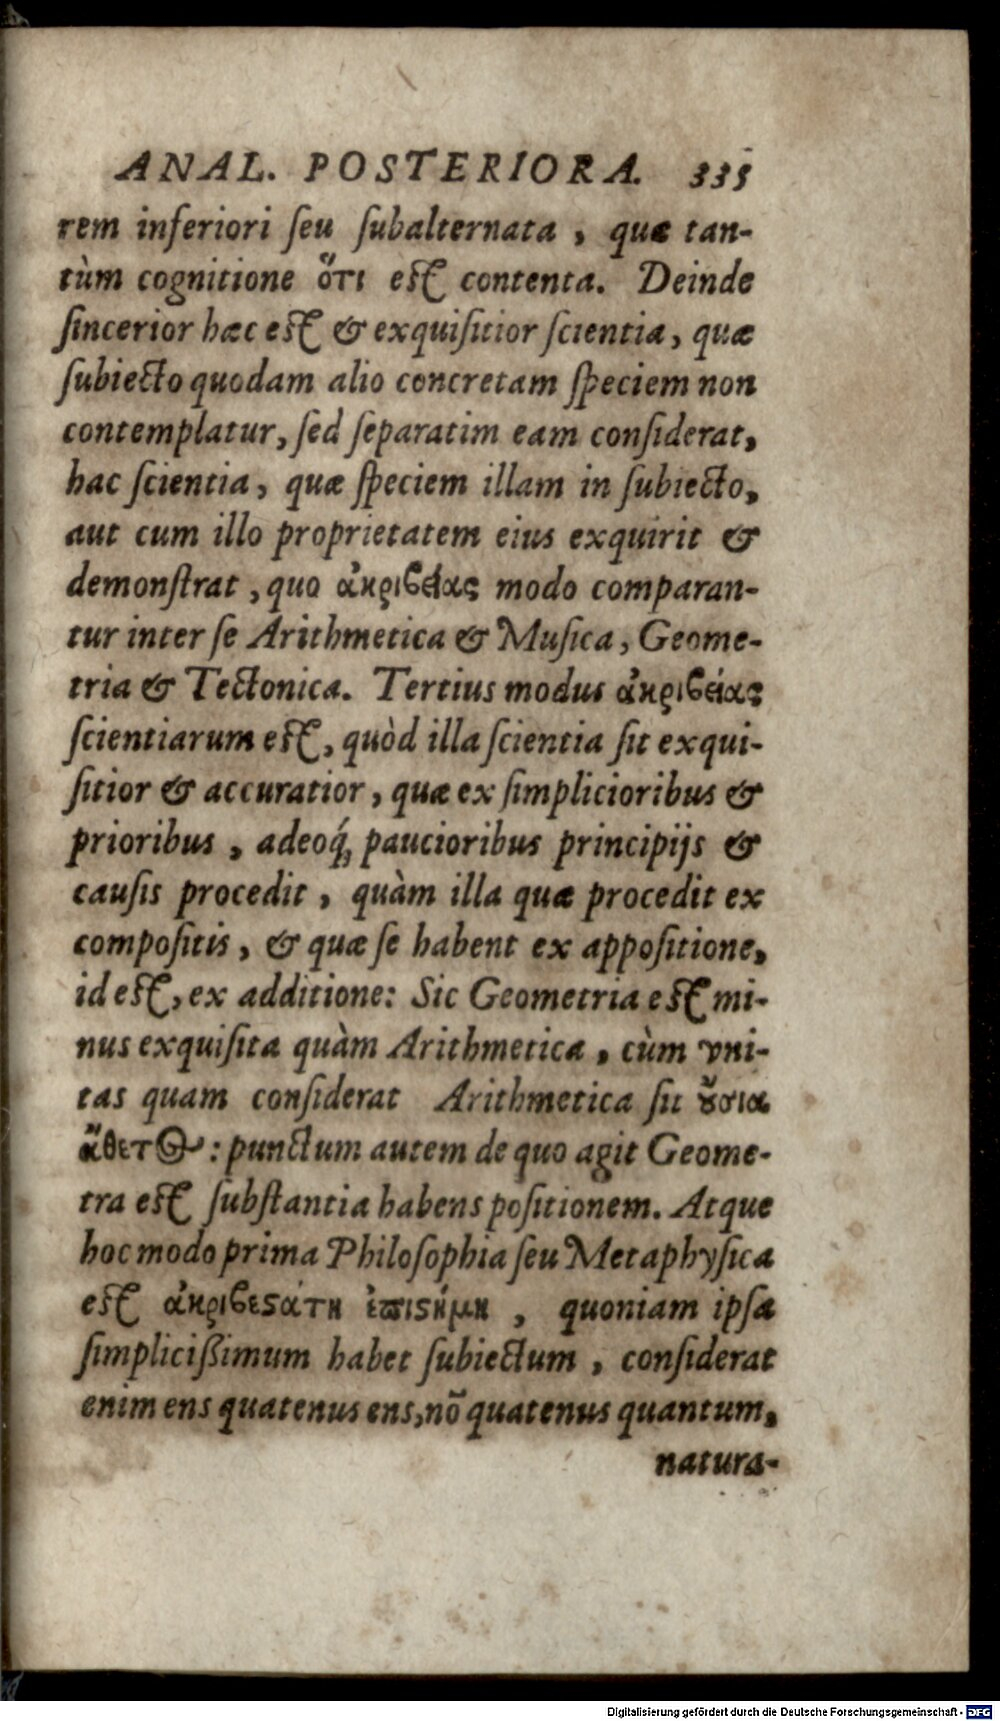 ANAL. POSTERIORA. 335
rem inferiori ſeu ſubalternata, quæ tan-
tùm cognitione ὅτι eſt contenta. Deinde
ſincerior hæc eſt & exquiſitior ſcientia, quæ
ſubiecto quodam alio concretam ſpeciem non
contemplatur, ſed ſeparatim eam conſiderat,
hac ſcientia, quæ ſpeciem illam in ſubiecto,
aut cum illo proprietatem eius exquirit &
demonſtrat, quo ἀκριβείας modo comparan-
tur inter ſe Arithmetica & Muſica, Geome-
tria & Tectonica. Tertius modus ἀκριβείας
ſcientiarum eſt, quòd illa ſcientia ſit exqui-
ſitior & accuratior, quæ ex ſimplicioribus &
prioribus, adeoq́; paucioribus principijs &
cauſis procedit, quàm illa quæ procedit ex
compoſitis, & quæ ſe habent ex appoſitione,
id eſt, ex additione: Sic Geometria eſt mi-
nus exquiſita quàm Arithmetica, cùm vni-
tas quam conſiderat Arithmetica ſit ȣ̓σια
ἄθετος: punctum autem de quo agit Geome-
tra eſt ſubſtantia habens poſitionem. Atque
hoc modo prima Philoſophia ſeu Metaphyſica
eſt ἀκριβεϛάτη ἐπιϛήμη, quoniam ipſa
ſimpliciſſimum habet ſubiectum, conſiderat
enim ens quatenus ens, nō quatenus quantum,
natura-
Digitalisierung gefördert durch die Deutsche Forschungsgemeinschaft - DFG